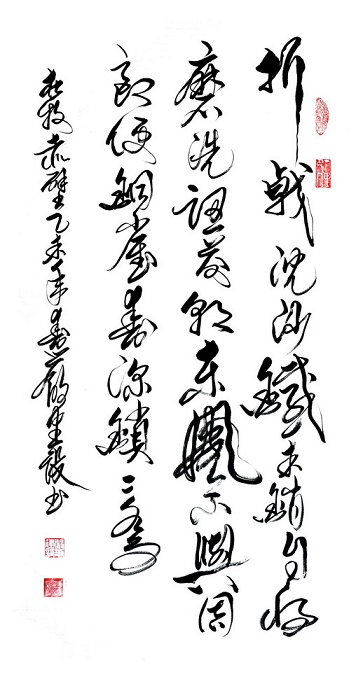 折戟沈沙鐵未銷自將
磨洗認前朝東風不與周
郎便銅雀春深鎖二喬
杜牧赤壁乙未年春書